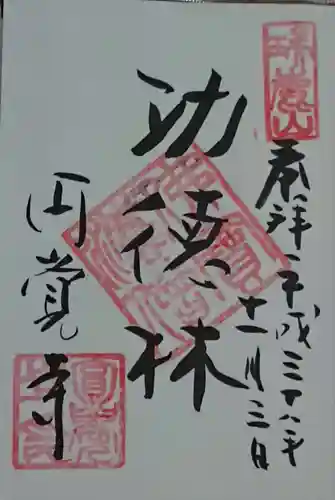 奉拝 平成二十八年
十一月三日
功徳林
円覚寺